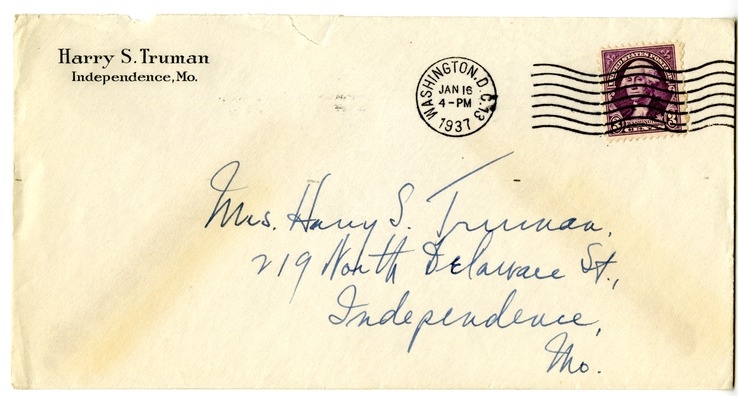 Harry S. Truman
Independence, Mo.
WASHINGTON, D.C. 13
JAN 16
4-PM
1937
UNITED STATES POSTAGE
3
3
Mrs. Harry S. Truman,
219 North Delaware St.,
Independence,
Mo.